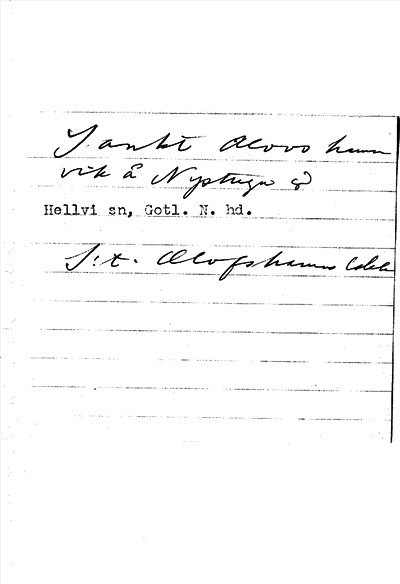 Sankt Olovs hamn
vik å Nystugu
Hellvi sn, Gotl. N. hd.
S:t. Olofshamn